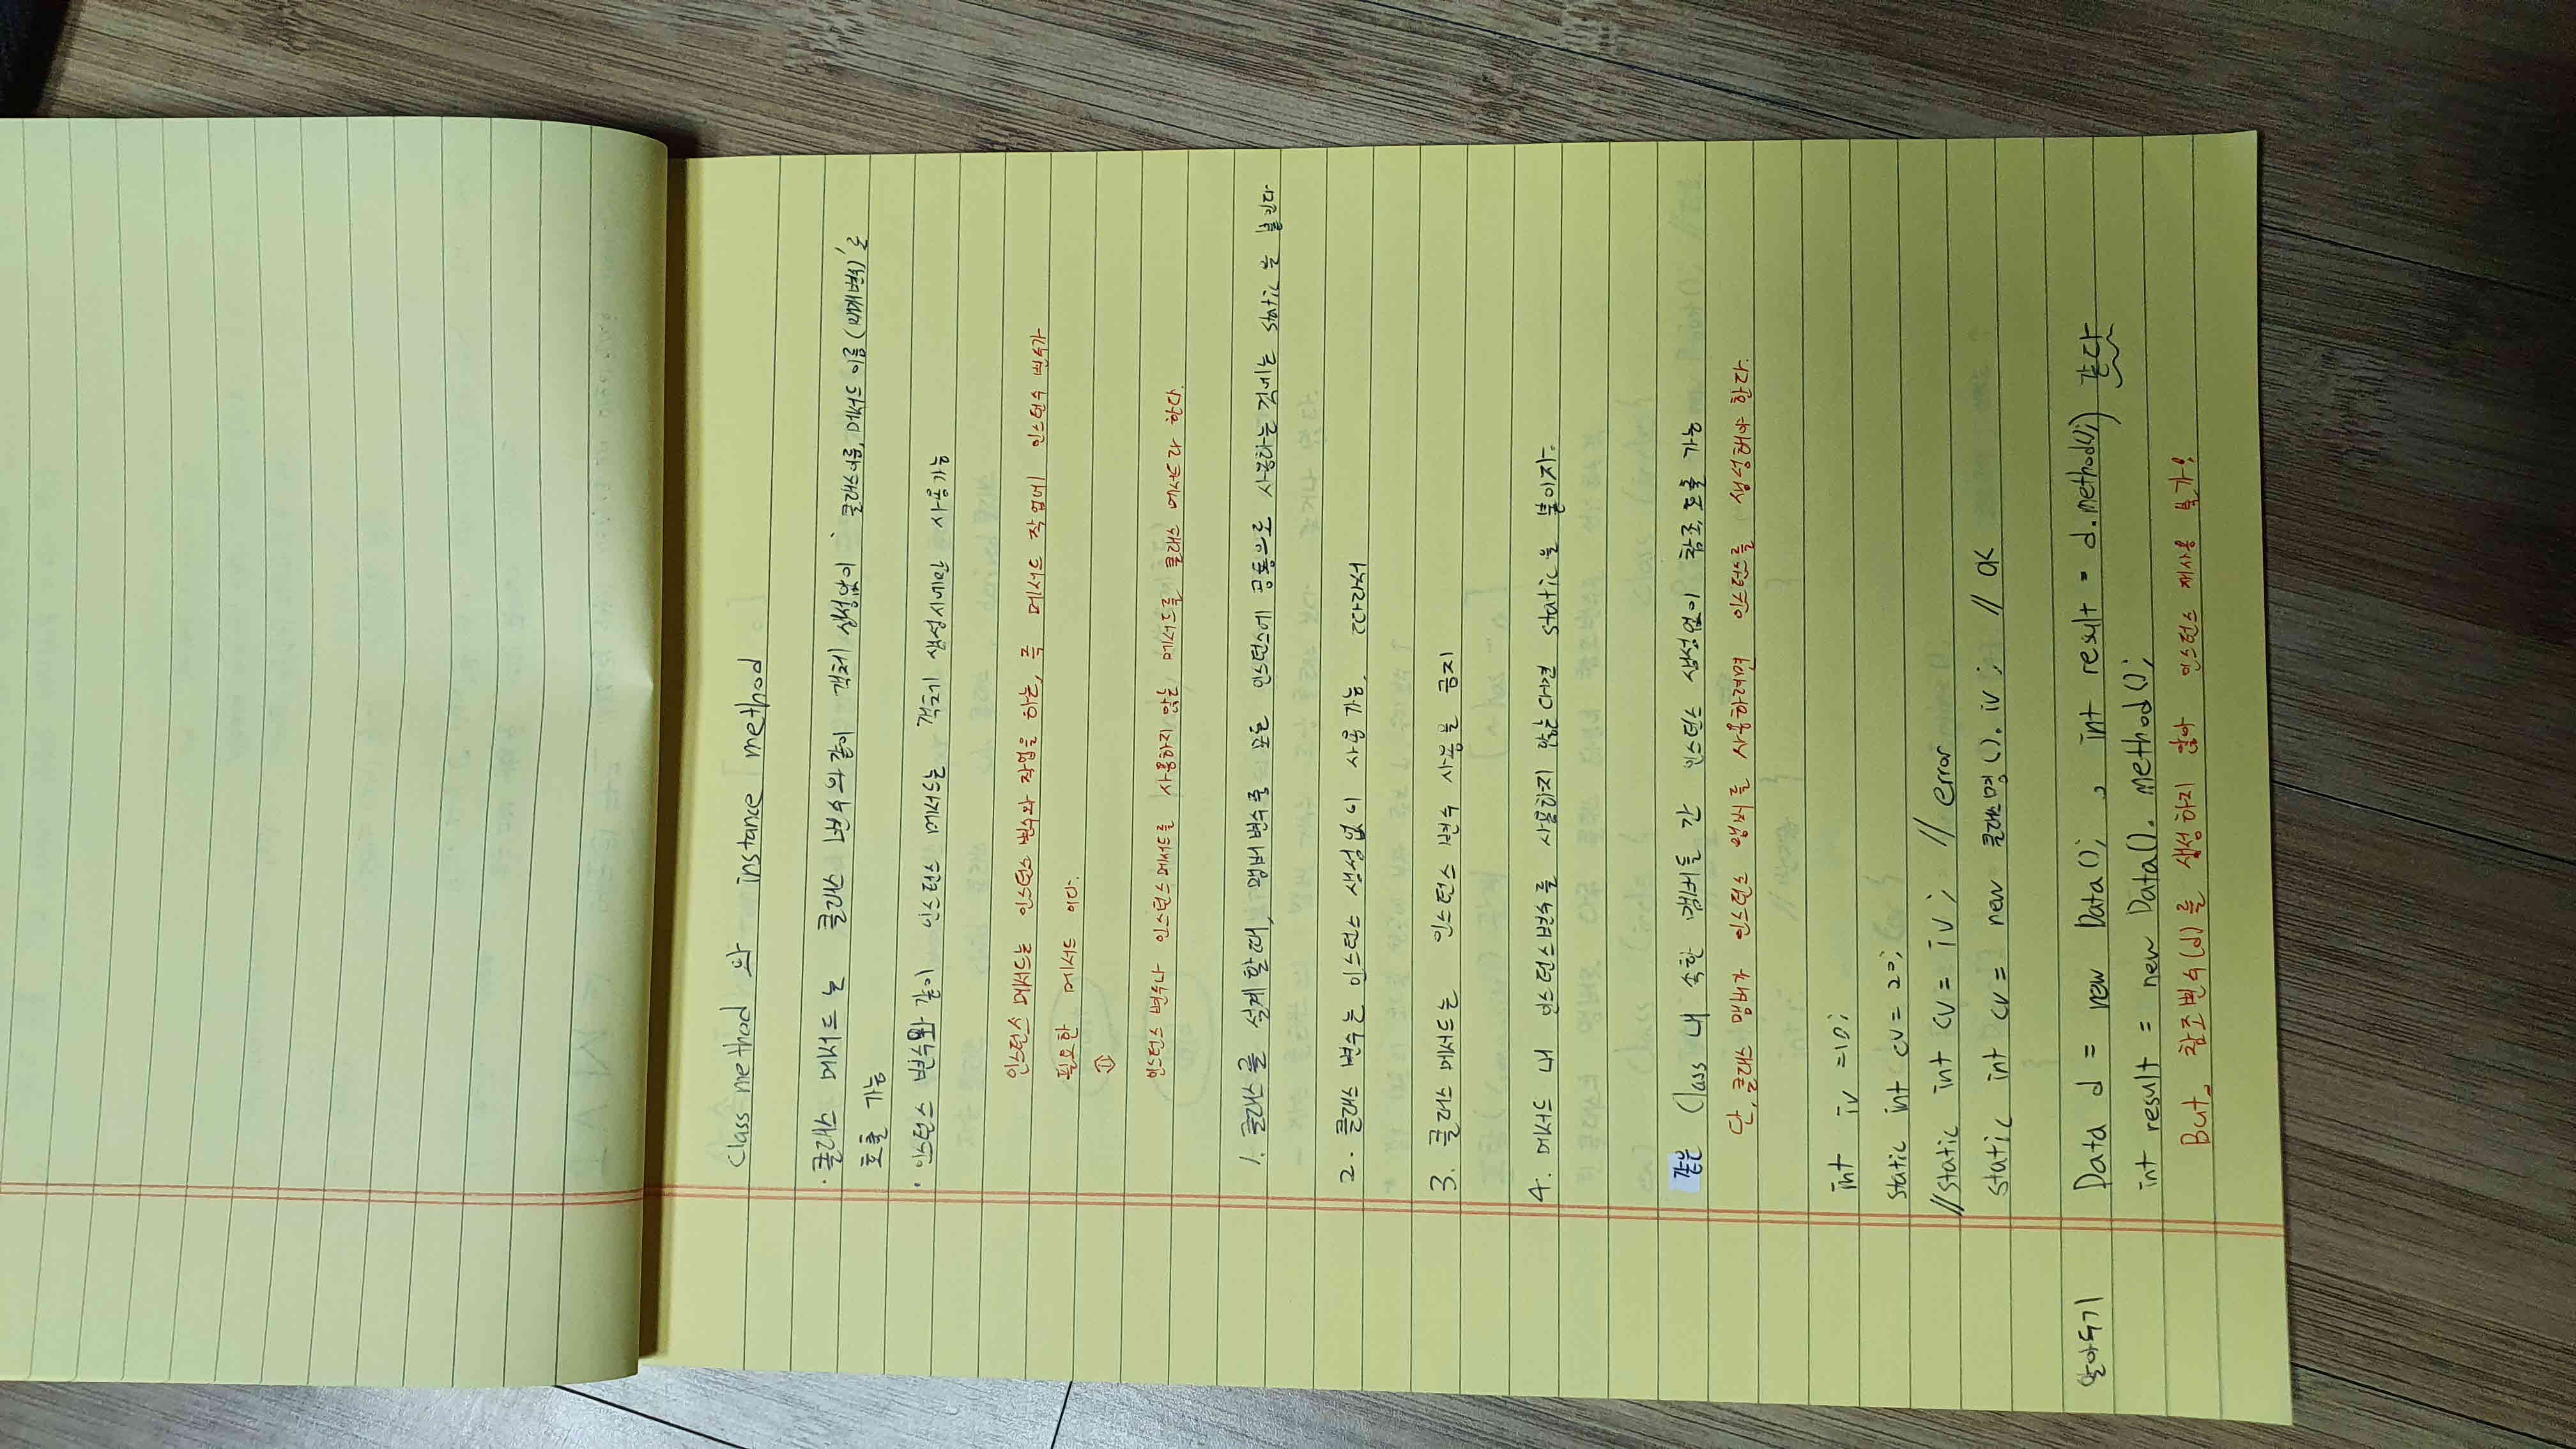 Class method 와 instance method
· 클래스 메서드는 클래스 변수와 같이 객체 생성없이 '클래스이름. 메서드 이름 (매개변수)'로
호출 가능
· 인스턴스 변수와 같이 인스턴스 메서드는 객체가 생성시에만 사용가능
인스턴스 메서드는 인스턴스 변수와 작업을 하는, 즉 메서드 작업에 인스턴스 변수가
필요한 메서드 이다.
⇕
인스턴스 변수나 인스턴스메서드를 사용하지 않는 메서드를 클래스 메서드라 한다.
1. 클래스를 설계 할때, 맴버변수중 모든 인스턴스에 공통으로 사용하는 것에는 static을 붙인다
2. 클래스 변수는 인스턴스 생성없이 사용 가능. 따라서
3. 클래스 메서드는 인스턴스 변수 사용을 금지
4. 메서드 내 인스턴스변수를 사용하지 않는다면 static을 붙이자.
같은 Class 내 속한 맴버들 간 인스턴스 생성없이 참조, 호출 가능
단, 클래스 맴버가 인스턴스 맴버를 사용하려면 인스턴스를 생성해야 한다.
int iv =10;
static int cv = 20;
//static int cv = iv; // error
static int cv = new 클래스명(). iv; // ok
알아두기 Data d = new Data(); , int result = d.method();) 같다
int result = new Data(). method();
But, 참조변수(d)를 생성하지 않아 인스턴스 재사용 불가!